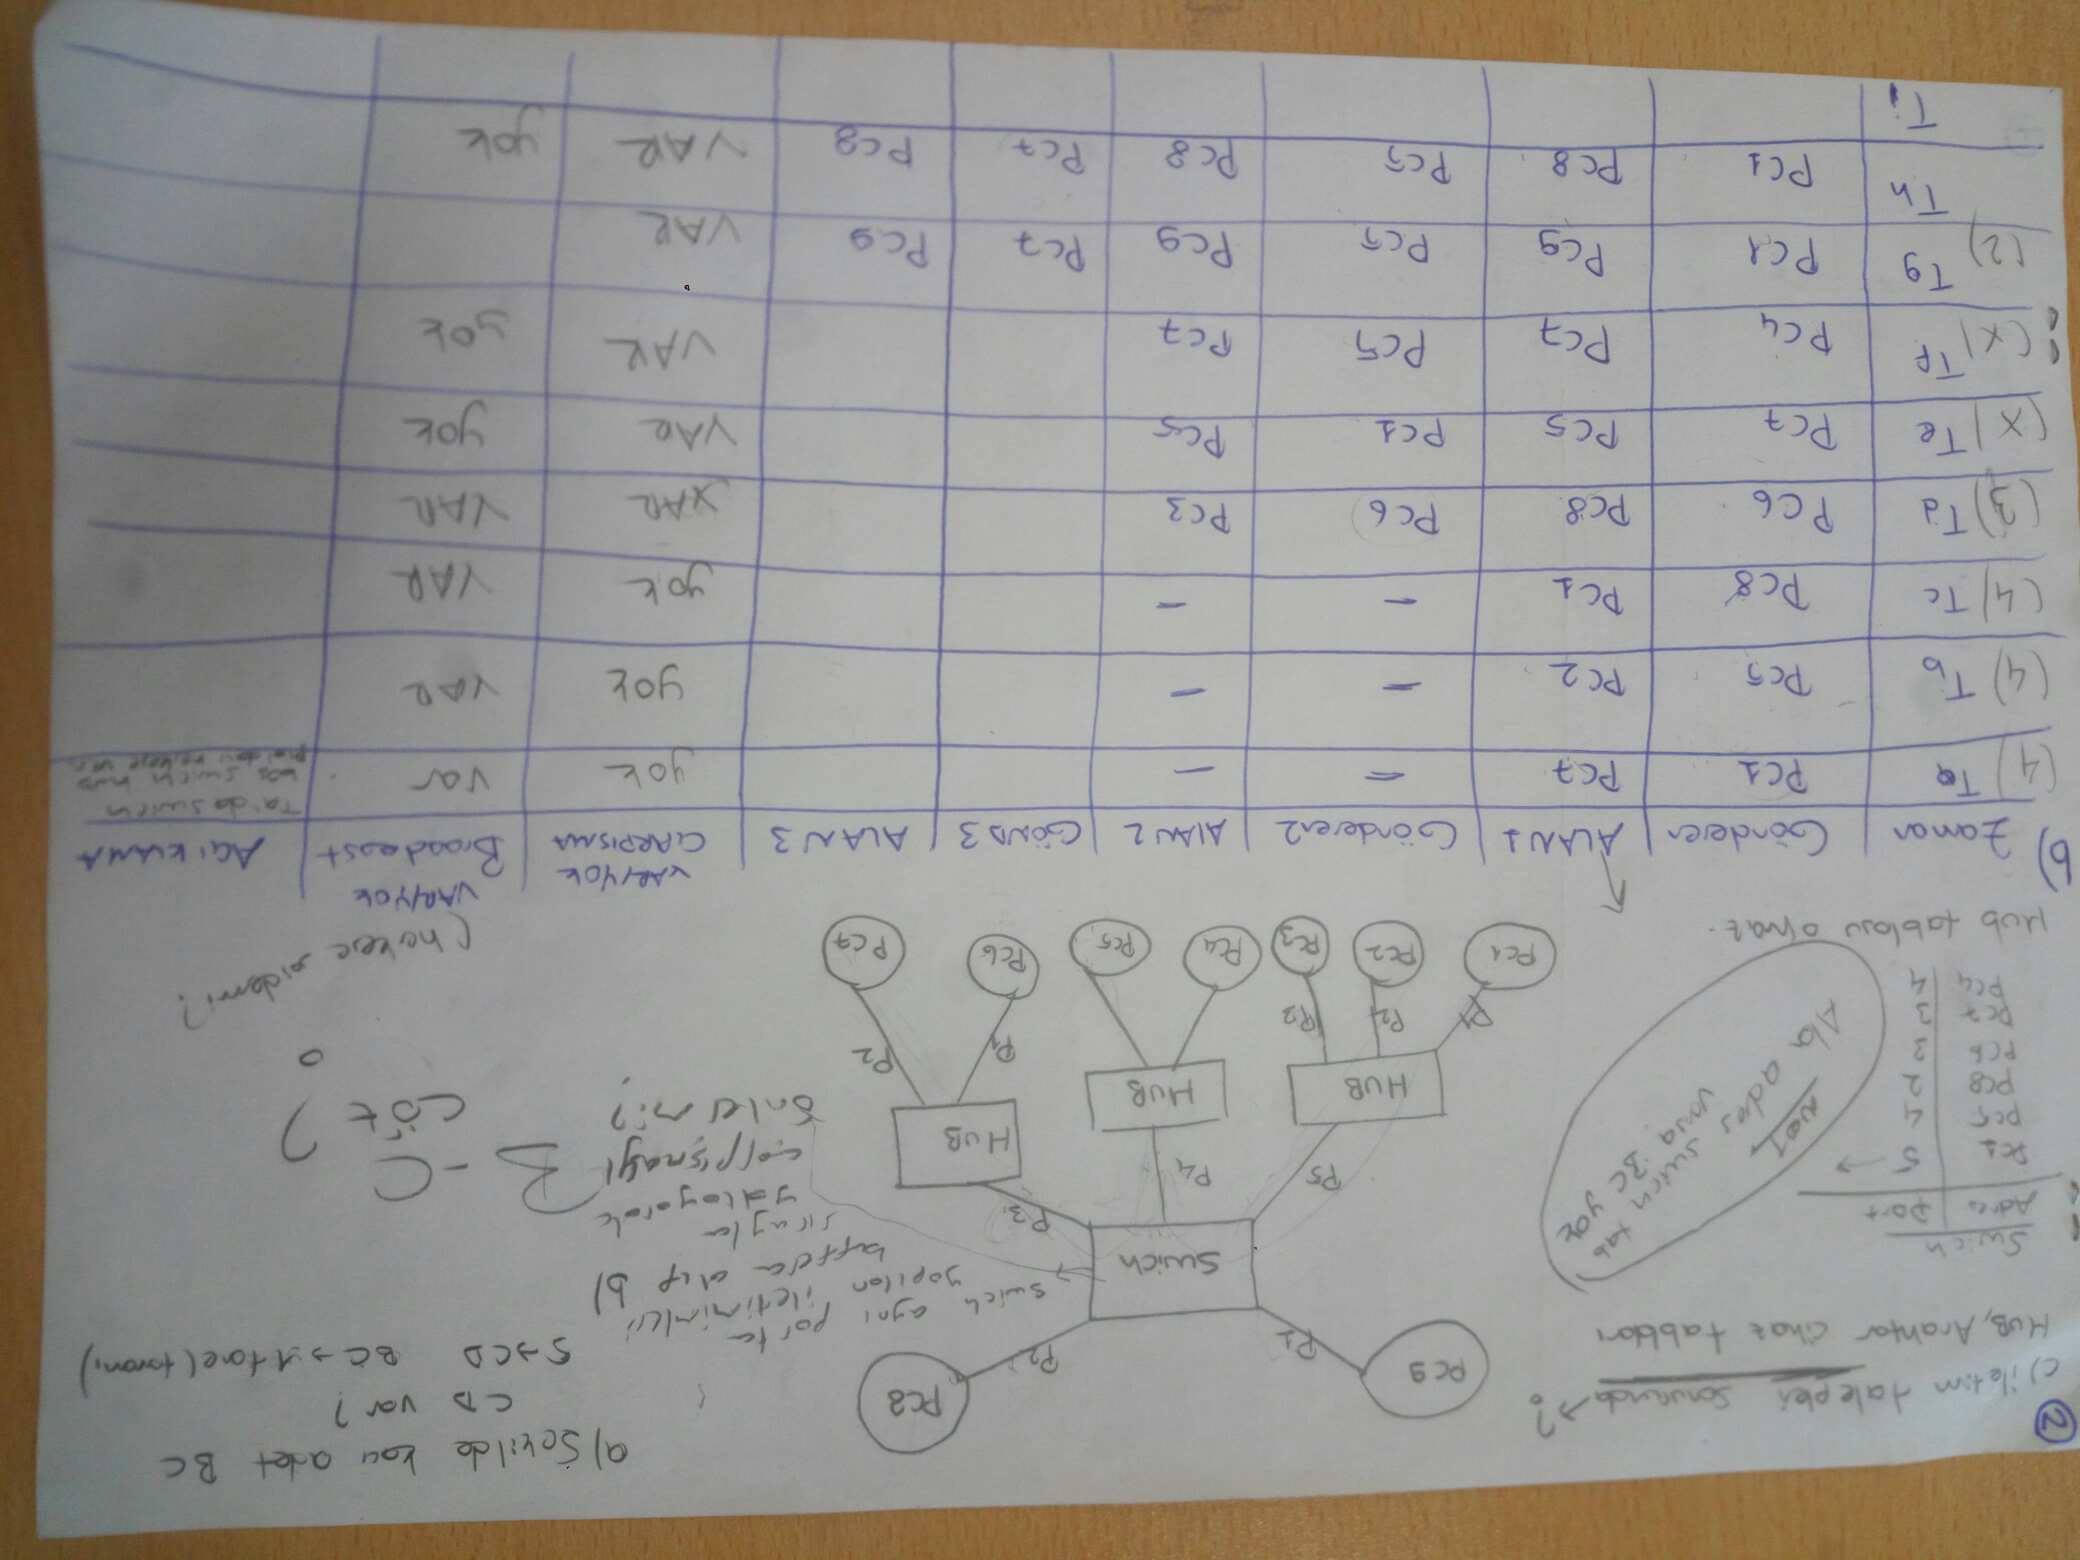 2
c) iletim talepleri sonucunda → ?
HUB, Anahtar cihaz tabloları
Swich
Adres | Port
PC1 | 5 →
PC5 | 4
PC8 | 2
PC6 | 3
PC7 | 3
PC4 | 4
Hub tablosu olmaz.
NOT
Alıcı adres swich tab
varsa BC yok
PC9
PC8
P1
P2
Swich
P5
P4
P3
HUB
HUB
HUB
P1
P2
P3
P1
P2
PC1
PC2
PC3
PC4
PC5
PC6
PC7
→ swich aynı porta
yapılan iletimimleri
buffera alıp
sırayla
yollayarak
çarpışmayı
önler mi?
a) Şekilde kaç adet BC
CD var?
5 → CD BC → 1 tane (tamamı)
b)
B - C
çöz ?
( herkese gidermi?
b)
VAR/YOK VAR/YOK
Zaman | Gönderen | ALAN 1 | Gönderen2 | AlAN 2 | GÖND 3 | ALAN 3 | ÇARPIŞMA | Broadcast | AÇIKLAMA
(4) Ta | PC1 | PC7 | - | - | yok | var | Ta'da swich
boş swich hub
herkese
(4) Tb | PC5 | PC2 | - | - | yok | VAR
(4) Tc | PC8 | PC1 | - | - | yok | VAR
(3) Td | PC6 | PC8 | PC6 | PC3 | VAR | VAR
(X) Te | PC7 | PC5 | PC1 | PC5 | VAR | yok
(X) Tf | PC4 | PC7 | PC5 | PC7 | VAR | yok
(2) Tg | PC1 | PC9 | PC5 | PC9 | PC7 | PC9 | VAR
Th | PC1 | PC8 | PC5 | PC8 | PC7 | PC8 | VAR | yok
Ti